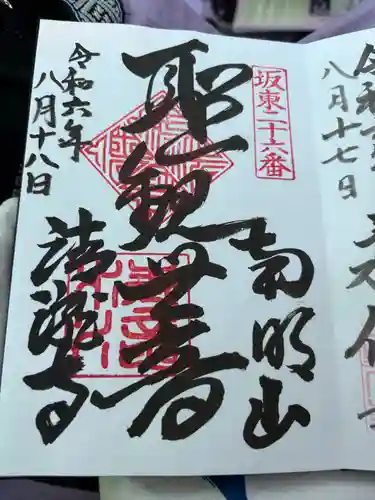 八月十七日
坂東二十六番
南明山
聖観世音
令和六年
八月十八日
清瀧寺